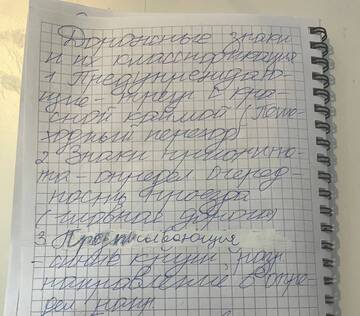 Дорожные знаки
и их классификация
1 Предупреждаю-
щие - треуг с кра-
сной каймой (Пеше-
ходный переход)
2 Знаки приорите-
та - определ очеред-
ность проезда
(главная дорога)
3. Предписывающие
- синие круги (напр
направление